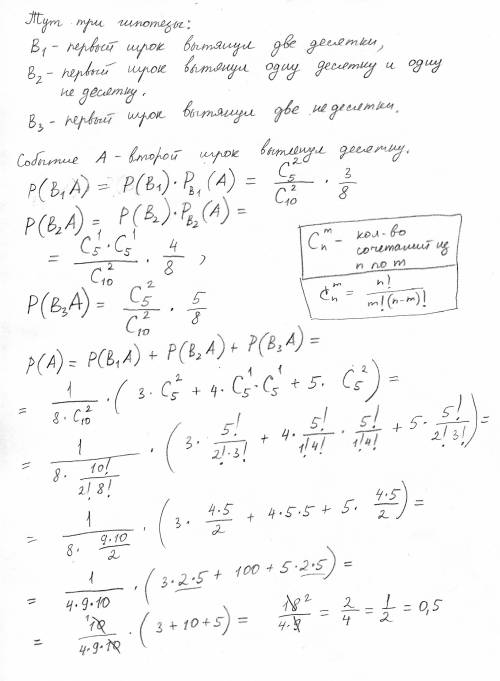 Тут три гипотезы:
B₁ - первый игрок вытянул две десятки,
B₂ - первый игрок вытянул одну десятку и одну
не десятку.
B₃ - первый игрок вытянул две недесятки.
Событие A - второй игрок вытянул десятку.
P(B₁A) = P(B₁)·P_B₁(A) = C₅²/C₁₀² · 3/8
P(B₂A) = P(B₂)·P_B₂(A) =
= C₅¹·C₅¹/C₁₀² · 4/8 ,
Cₙᵐ - кол-во
сочетаний из
n по m
Cₙᵐ = n!/m!(n-m)!
P(B₃A) = C₅²/C₁₀² · 5/8
P(A) = P(B₁A) + P(B₂A) + P(B₃A) =
= 1/8·C₁₀² · (3·C₅² + 4·C₅¹·C₅¹ + 5·C₅²) =
= 1/8·10!/2!8! · (3·5!/2!·3! + 4·5!/1!4!·5!/1!4! + 5·5!/2!3!) =
= 1/8·9·10/2 · (3·4·5/2 + 4·5·5 + 5·4·5/2) =
= 1/4·9·10 · (3·2·5 + 100 + 5·2·5) =
= ¹10/4·9·10 · (3+10+5) = 18²/4·9 = 2/4 = 1/2 = 0,5